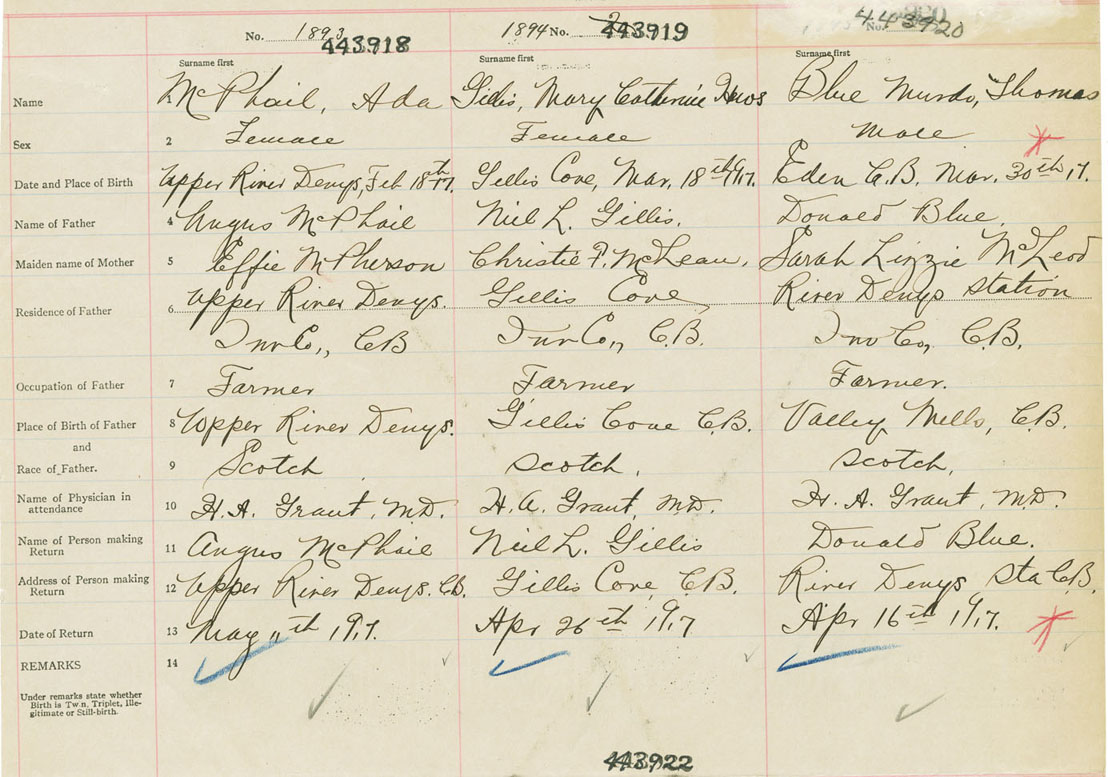 No. 1893 443918 1894 No. 443919 No. 443920
Surname first Surname first Surname first
Name 1 McPhail, Ada Gillis, Mary Catherine Blue Murdo, Thomas
Sex 2 Female Female Male
Date and Place of Birth Upper River Denys, Feb 18th 17. Gillis Cove, Mar. 18th 1917. Eden C.B. Mar. 30th 17.
Name of Father 4 Angus McPhail Niel L. Gillis. Donald Blue
Maiden name of Mother 5 Effie McPherson Christie F. McLean. Sarah Lizzie McLeod
Residence of Father 6 Upper River Denys. Gillis Cove River Denys Station
Inv Co., CB Inv Co., C.B. Inv Co, C.B.
Occupation of Father 7 Farmer Farmer Farmer.
Place of Birth of Father 8 Upper River Denys. Gillis Cove C.B. Valley Mills, C.B.
and
Race of Father. 9 Scotch Scotch. Scotch,
Name of Physician in attendance 10 H. A. Grant, M.D. H. A. Grant, M.D. H. A. Grant, M.D.
Name of Person making Return 11 Angus McPhail Niel L. Gillis Donald Blue.
Address of Person making Return 12 Upper River Denys. C.B. Gillis Cove, C.B. River Denys Sta C.B.
Date of Return 13 May 11th 1917. Apr 26th 1917 Apr 16th 1917.
REMARKS 14
Under remarks state whether
Birth is Twin, Triplet, Ille-
gitimate or Still-birth.
443922